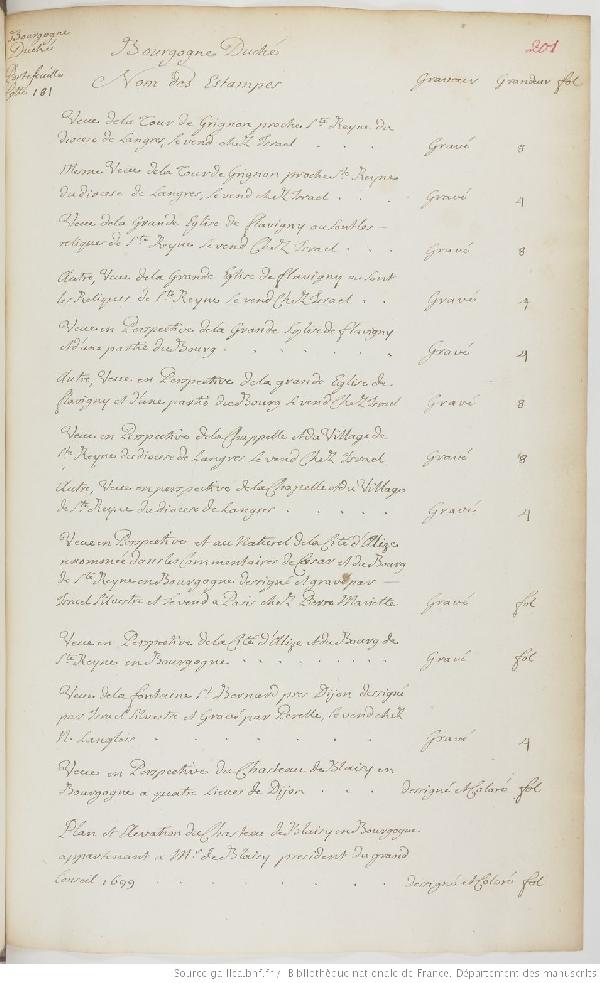 Bourgogne
Duché
Portefeuille
181
201
Bourgogne Duché
Nom des Estampes Graveurs Grandeur fol
Veue de la Tour de Grignon proche Ste Reyne du
diocese de Langres, se vend chez Israel . . . Gravé 8
Mesme Veue de la Tour de Grignon proche Ste Reyne
du diocese de Langres, se vend chez Israel . . . Gravé 4
Veue de la Grande Eglise de flavigny ou sont les —
reliques de Ste Reyne se vend Chez Israel . . . Gravé 8
Autre, Veue de la Grande Eglise de flavigny ou sont
les Reliques de Ste Reyne se vend Chez Israel . . Gravé 4
Veue en Perspective de la Grande Eglise de flavigny
et d'une partie du Bourg . . . . . . Gravé 4
Autre, Veue en Perspective de la grande Eglise de
flavigny et d'une partie du Bourg se vend Chez Israel Gravé 8
Veue en Perspective de la Chappelle et du Village de
Ste Reyne du diocese de Langres se vend Chez Israel Gravé 8
Autre, Veue en perspective de la Chapelle et du Village
de Ste Reyne du diocese de Langres . . . . . Gravé 4
Veue en Perspective et au Naturel de la Cité d'Alize
renommée dans les Commentaires de Cesar et du Bourg
de Ste Reyne en Bourgogne dessigné et gravé par —
Israel Silvestre et se vend a Paris chez Pierre Mariette Gravé fol
Veue en Perspective de la Cité d'Alize et du Bourg de
Ste Reyne en Bourgogne . . . . . . . . . Gravé fol
Veue de la fontaine St Bernard pres Dijon dessigné
par Israel Silvestre et Gravé par Perelle, se vend chez
N. Langlois . . . . . Gravé 4
Veue en Perspective du Chasteau de Blaisy en
Bourgogne a quatre Lieues de Dijon . . . dessigné et Coloré fol
Plan et Elevation du Chasteau de Blaisy en Bourgogne
appartenant a Mr. de Blaisy president du grand
Conseil 1699 . . . . . . . dessigné et Coloré fol
Source gallica.bnf.fr / Bibliothèque nationale de France. Département des manuscrits